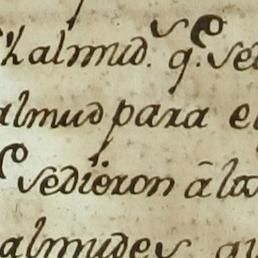 almud. q.e se
almud para e
se dieron â la
almudes